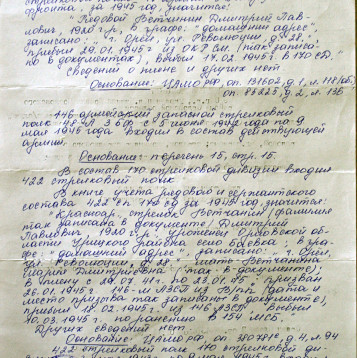 фронта, за 1945 год, значится:
"Рядовой Ветчинин Дмитрий Пав-
лович 1920 г.р., в графе: "домашний адрес",
записано: "г. Орел, ул. Революции, д. 28",
прибыл 29.01.1945г из ОКР См. (так записа-
но в документах), выбыл 17.02.1945г в 170 сд."
Сведений о плене и других нет
Основание: ЦАМО РФ, оп. д. 1, л. 118(об)
оп. 85225, д. 2, л. 136
446 армейский запасной стрелковый
полк 48 А 3 БФ с 5 1942 года по 9
мая 1945 года входил в состав действующей
армии.
Основание: перечень 15, стр. 15.
В состав 170 стрелковой дивизии входил
422 стрелковый полк.
В книге учета рядового и сержантского
состава 422 сп 170 сд за 1945 год, значится:
"Красноар. стрелок Ветчанин (фамилие
так записана в документе) Дмитрий
Павлович 1920 г.р., уроженец Орловской об-
ласти Урицкого района село Боевка; в гра-
фе: "домашний адрес", записано: "г. Орел,
ул. Революции, д. 28" мать - Ветчанина
Мария Дмитриевна (так в документе)
в плену с 29.07.41г. по 23.01.45г. призван
26.01.1945г. 146 (дата и
место призыва так записаны в документе),
прибыл 18.02.1945г. из 446 АЗСП. Выбыл
10.03.1945г. по ранению в 94 МСБ."
Других сведений нет.
Основание: ЦАМО РФ, оп. д. 4, л. 94
422 стрелковый полк 170 стрелковой ди-